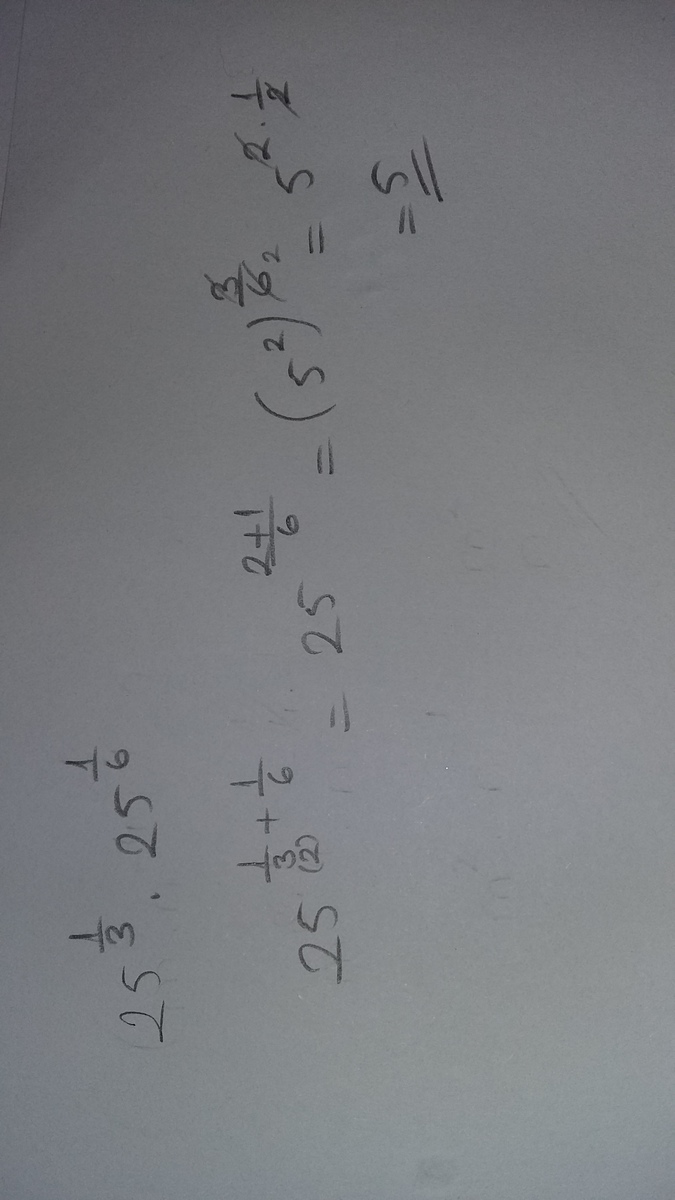 25^{1/3} · 25^{1/6}
25^{1/3 (2) + 1/6} = 25^{(2+1)/6} = (5^2)^{3/6 2} = 5^{2 · 1/2}
= 5